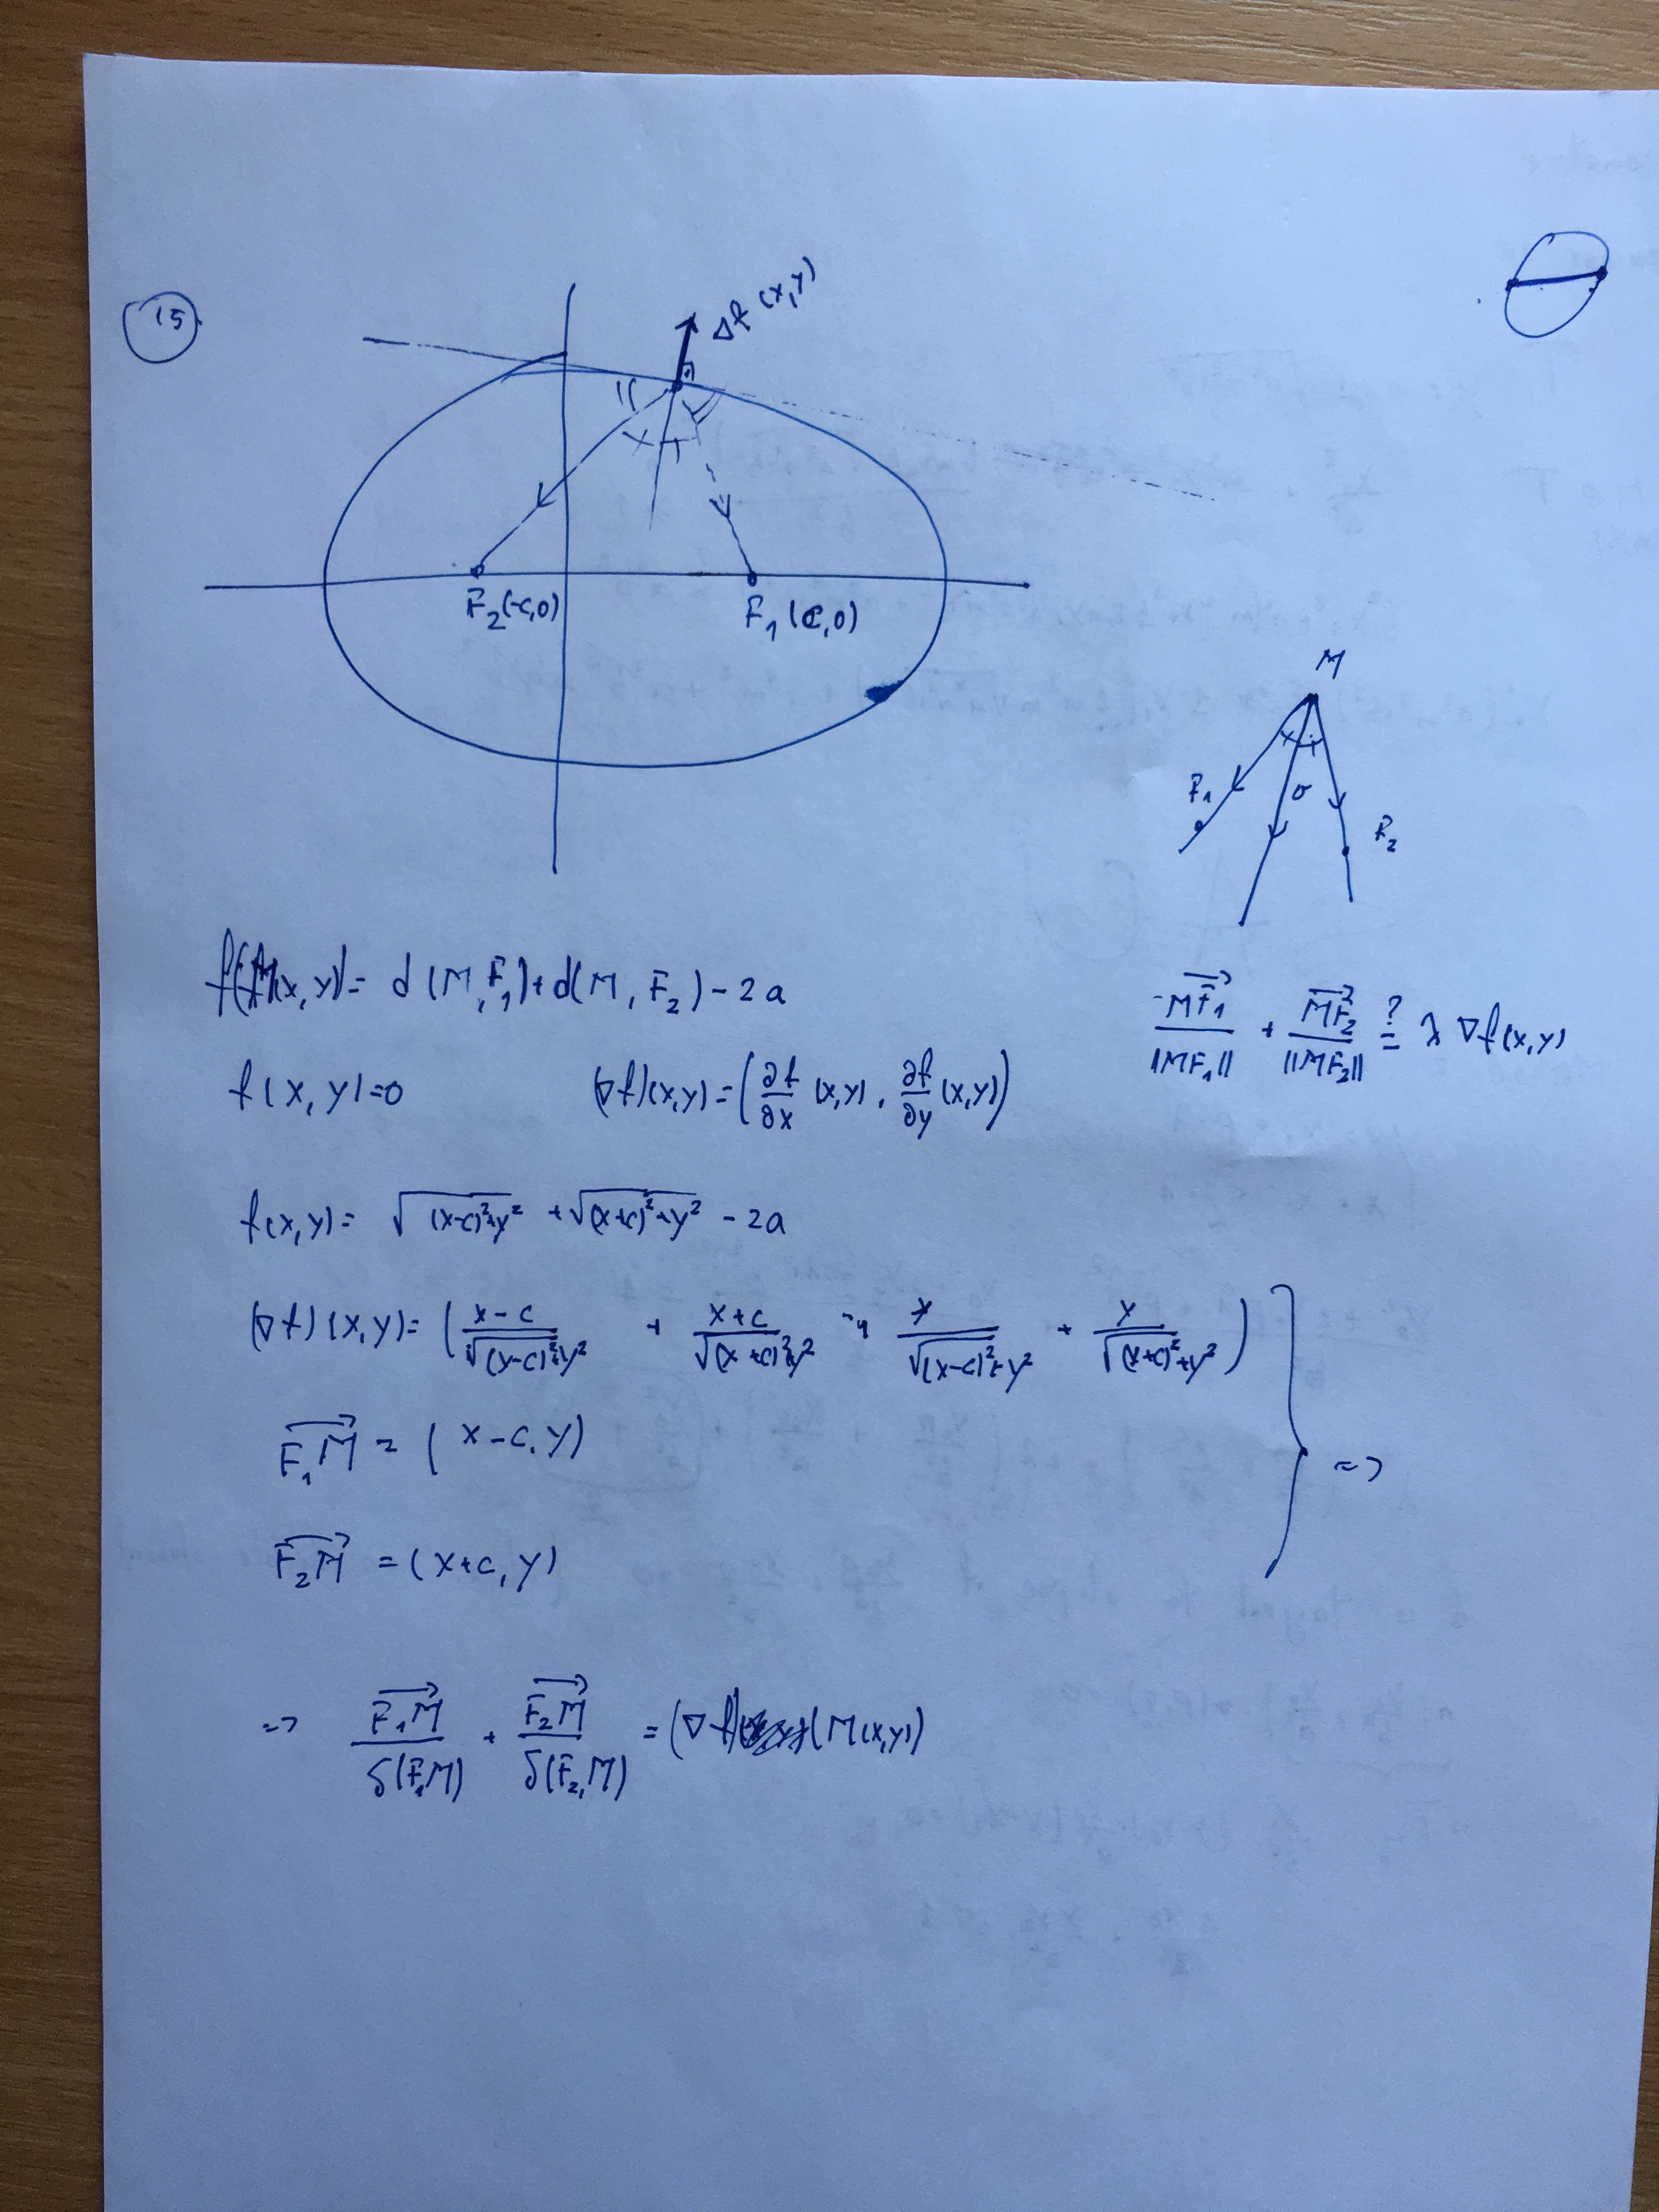 15
∇f (x,y)
F₂(-c,0)
F₁(c,0)
M
F₁
σ
F₂
f(x,y)= d(M,F₁)+d(M,F₂)-2a
-MF₁/||MF₁|| + MF₂/||MF₂|| ?= λ ∇f(x,y)
f(x,y)=0
(∇f)(x,y)=(∂f/∂x (x,y), ∂f/∂y (x,y))
f(x,y)= √(x-c)²+y² +√(x+c)²+y² -2a
(∇f)(x,y)=( x-c/√(y-c)²+y² + x+c/√(x+c)²+y² , y/√(x-c)²+y² + y/√(x+c)²+y² )
F₁M = (x-c,y)
=>
F₂M =(x+c,y)
=> F₁M/δ(F₁M) + F₂M/δ(F₂,M) =(∇f)(M(x,y))